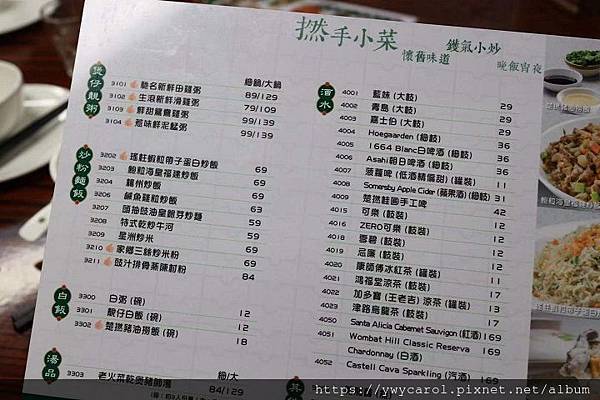 撚手小菜
懷舊味道
鑊氣小炒
晚飯宵夜
煲仔靚粥
細鍋/大鍋
3101 馳名新鮮田雞粥 89/129
3102 生滾新鮮滑雞粥 79/109
3103 鮮甜鴛鴦雞粥 99/139
3104 惹味鮮泥鯭粥 99/139
炒粉麵飯
3202 瑤柱蝦粒帶子蛋白炒飯 69
3203 鮑粒海皇福建炒飯 69
3204 楊州炒飯 59
3206 鹹魚雞粒炒飯 59
3207 頭抽豉油皇銀芽炒麵 63
3208 特式乾炒牛河 59
3209 星洲炒米 59
3210 家鄉三絲炒米粉 69
3211 豉汁排骨蒸陳村粉 84
白飯
3300 白粥 (碗) 12
3301 靚仔白飯 (碗) 12
3302 楚撚豬油撈飯 (碗) 18
湯品
細/大
3303 老火菜乾煲豬𦟌湯 84/129
酒水
4001 藍妹 (大鼓) 29
4002 青島 (大鼓) 29
4003 嘉士伯 (大鼓) 29
4004 Hoegaarden (細鼓) 29
4005 1664 Blanc白啤酒 (細鼓) 29
4006 Asahi朝日啤酒 (細鼓) 29
4007 菠蘿啤 (低酒精偏甜) (罐裝) 11
4008 Somersby Apple Cider (蘋果酒) (細鼓) 31
4009 楚撚桂圓手工啤 42
4015 可樂 (鼓裝) 12
4016 ZERO可樂 (鼓裝) 12
4018 雪碧 (鼓裝) 12
4019 忌廉 (鼓裝) 12
4020 康師傅冰紅茶 (罐裝) 12
4021 鴻福堂涼茶 (鼓裝) 17
4022 加多寶 (王老吉) 涼茶 (罐裝) 13
4023 津路烏龍茶 (鼓裝) 17
4050 Santa Alicia Cabernet Sauvignon (紅酒) 169
4051 Wombat Hill Classic Reserve
Chardonnay (白酒) 169
4052 Castell Cava Sparkling (汽酒) 169
鮑粒海皇福建炒飯
瑤柱蝦粒帶子蛋白炒飯
https://ywycarol.pixnet.net/album